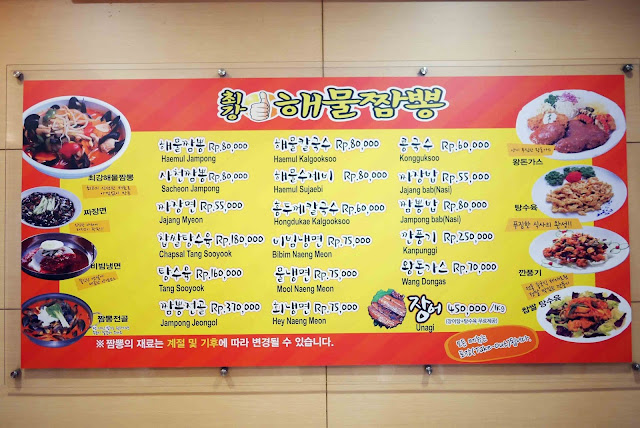 최강 해물짬뽕
해물짬뽕 Rp.80,000
Haemul Jampong
사천짬뽕 Rp.80,000
Sacheon Jampong
짜장면 Rp.55,000
Jajang Myeon
찹쌀탕수육 Rp.180,000
Chapsal Tang Sooyook
탕수육 Rp.160,000
Tang Sooyook
짬뽕전골 Rp.370,000
Jampong Jeongol
해물칼국수 Rp.80,000
Haemul Kalgooksoo
해물수제비 Rp.80,000
Haemul Sujaebi
홍두깨칼국수 Rp.60,000
Hongdukae Kalgooksoo
비빔냉면 Rp.75,000
Bibim Naeng Meon
물냉면 Rp.75,000
Mool Naeng Meon
회냉면 Rp.75,000
Hey Naeng Meon
콩국수 Rp.60,000
Kongguksoo
짜장밥 Rp.55,000
Jajang bab(Nasi)
짬뽕밥 Rp.80,000
Jampong bab(Nasi)
깐풍기 Rp.250,000
Kanpunggi
왕돈가스 Rp.70,000
Wang Dongas
장어 450,000 /1Kg
Unagi
최강해물짬뽕
짜장면
비빔냉면
짬뽕전골
왕돈가스
탕수육
깐풍기
찹쌀 탕수육
※ 짬뽕의 재료는 계절 및 기후에 따라 변경될 수 있습니다.